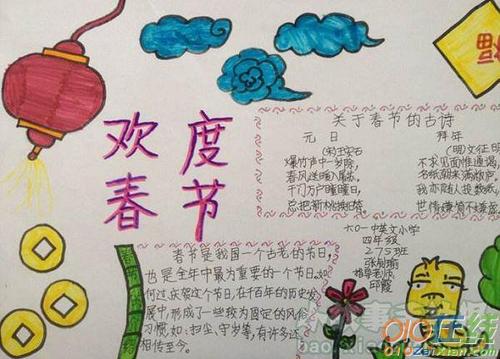 欢度
春节
福
关于春节的古诗
元日
(宋)王安石
爆竹声中一岁除,
春风送暖入屠苏。
千门万户曈曈日,
总把新桃换旧符
拜年
(明)文征明
不求见面惟通谒,
名纸朝来满敝庐。
我亦随人投数纸,
世情嫌简不嫌虚
六〇一中英文小学
四年级
275班
指导老师
邱霞
春节是我国一个古老的节日,
也是全年中最为重要的一个节日,如
何过庆贺这个节日,在千百年的历史发
展中,形成了一些较为固定的风俗
习惯,如:扫尘、守岁等,有许多还
相传至今。
010在线
010zaixian.com